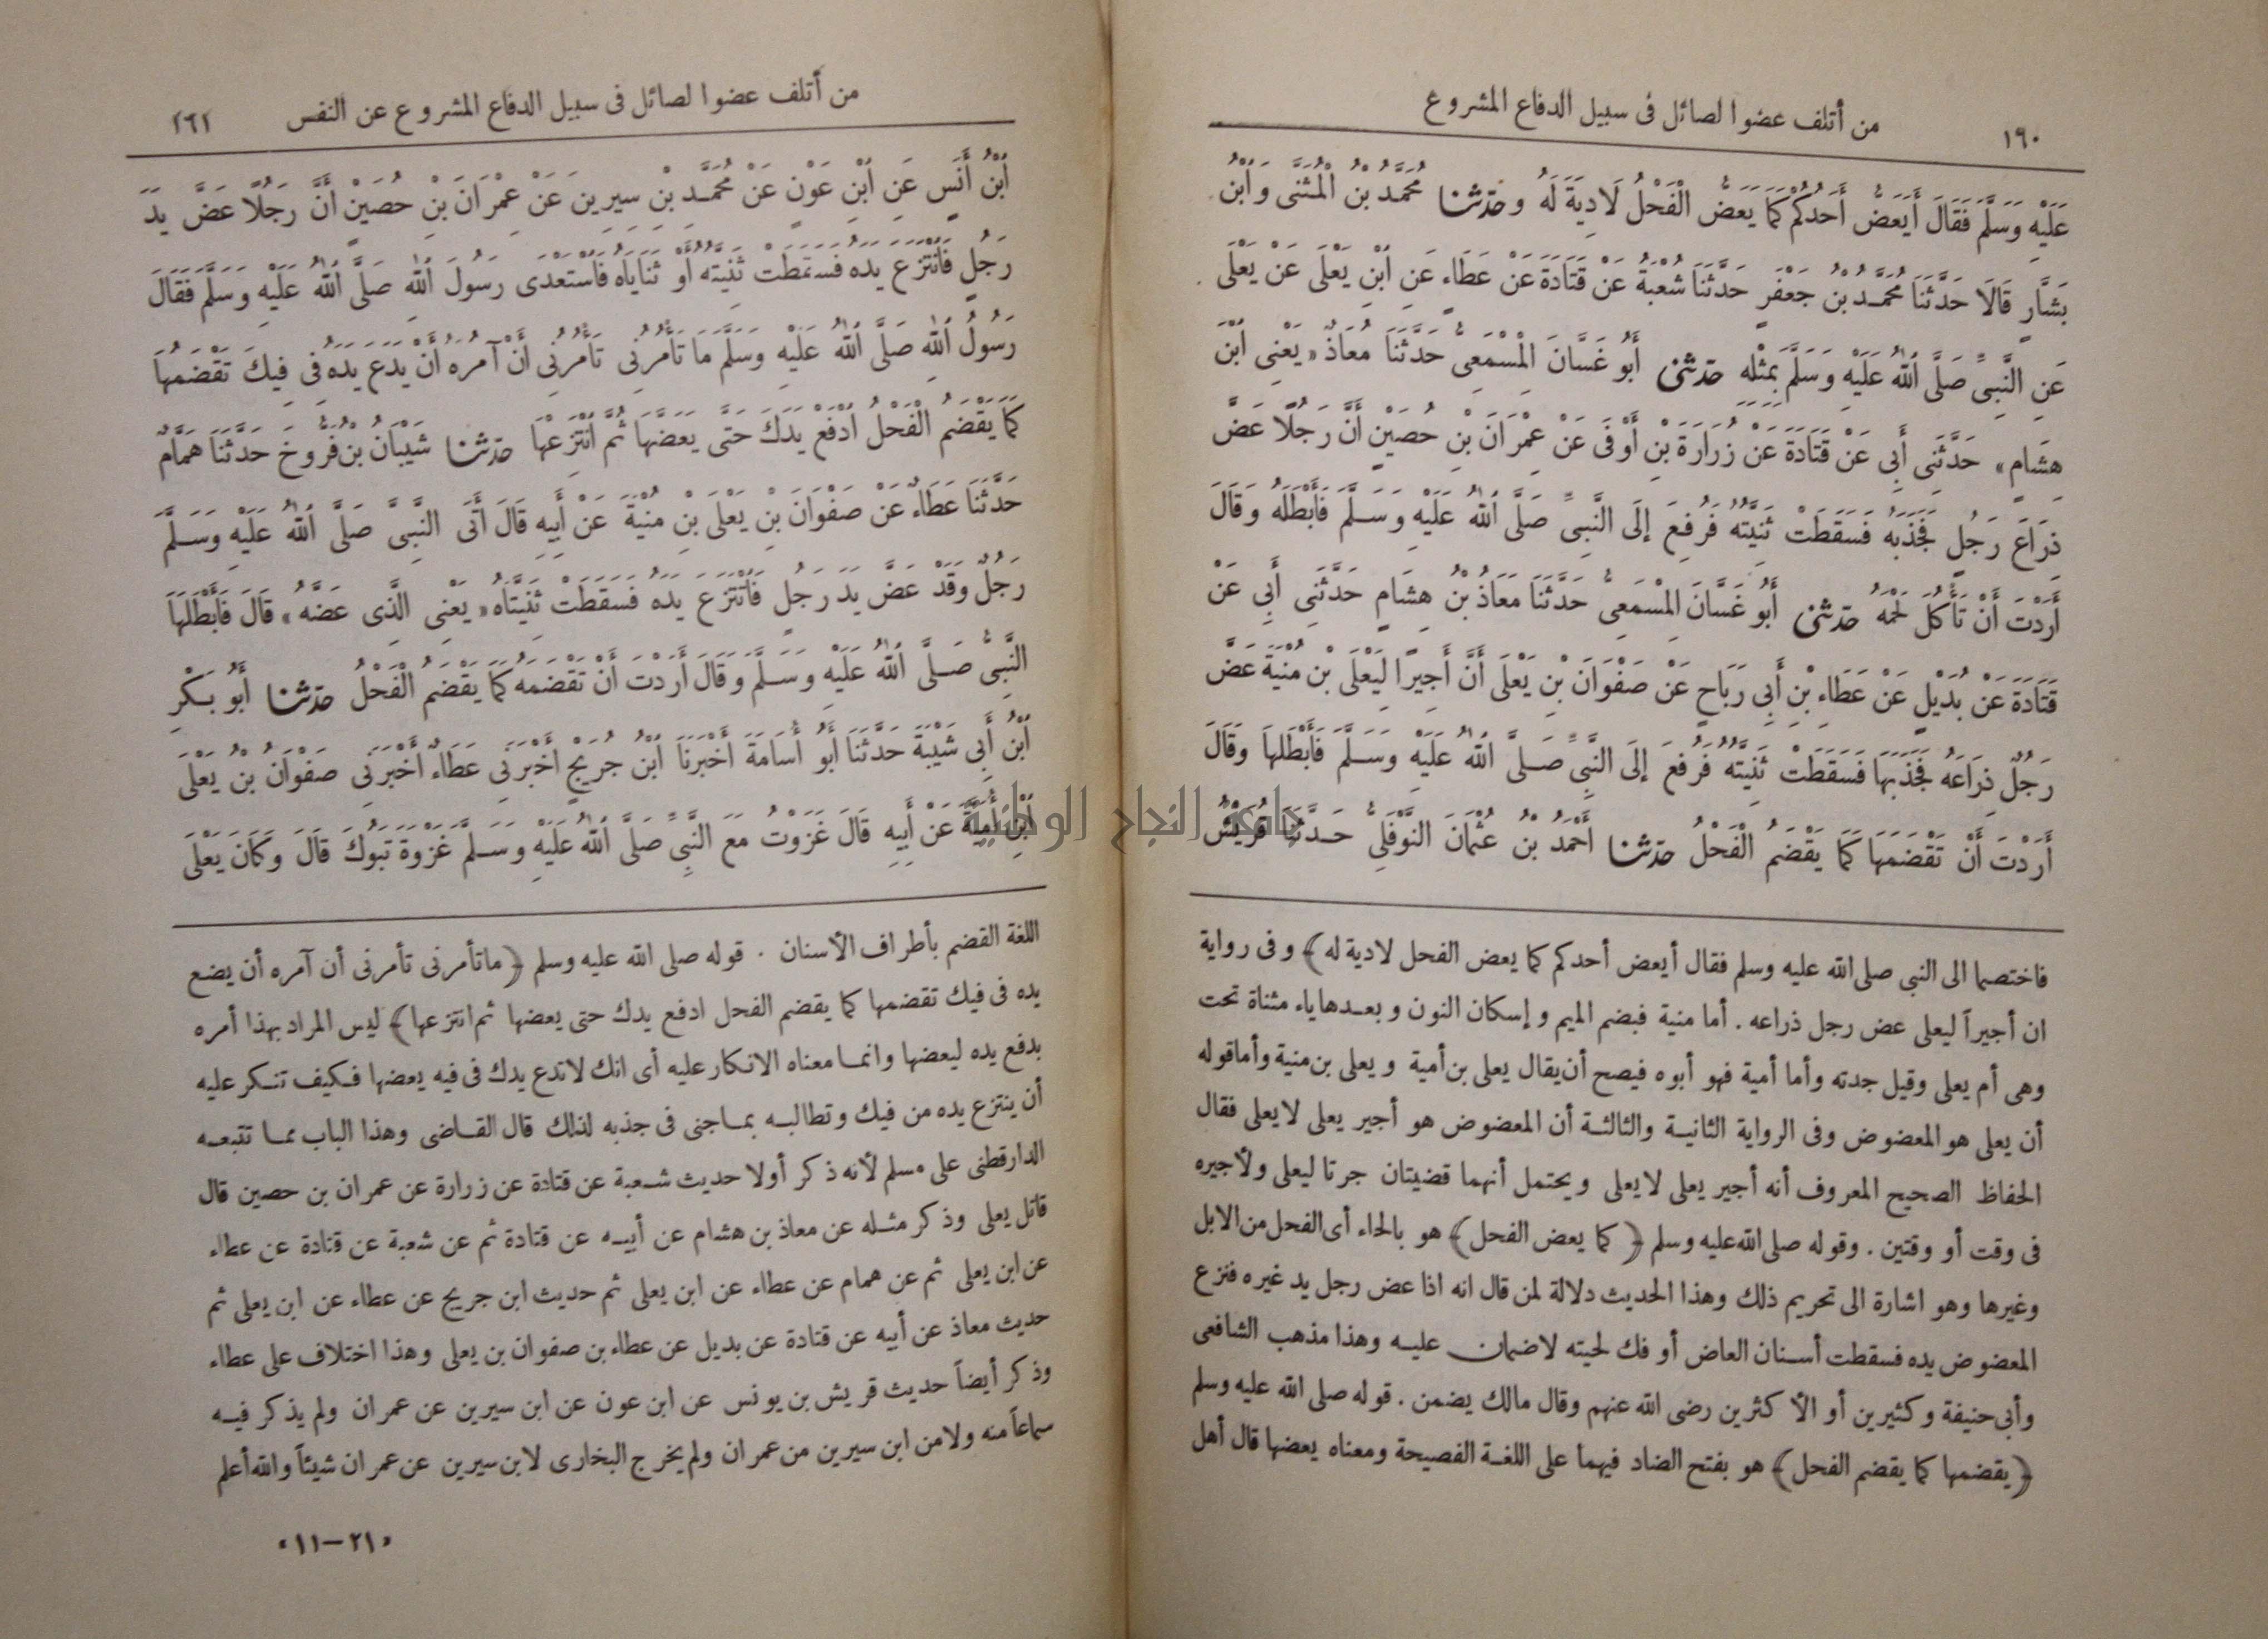 ١٩٠ من أتلف عضوا لصائل فى سبيل الدفاع المشروع
عَلَيْهِ وَسَلَّمَ فَقَالَ أَيَعَضُّ أَحَدُكُمْ كَمَا يَعَضُّ الْفَحْلُ لَادِيَةَ لَهُ وحَدَّثَنَا مُحَمَّدُ بْنُ الْمُثَنَّى وَابْنُ
بَشَّارٍ قَالَا حَدَّثَنَا مُحَمَّدُ بْنُ جَعْفَرٍ حَدَّثَنَا شُعْبَةُ عَنْ قَتَادَةَ عَنْ عَطَاءٍ عَنِ ابْنِ يَعْلَى عَنْ يَعْلَى
عَنِ النَّبِىِّ صَلَّى اللهُ عَلَيْهِ وَسَلَّمَ بِمِثْلِهِ حَدَّثَنِى أَبُو غَسَّانَ الْمِسْمَعِىُّ حَدَّثَنَا مُعَاذٌ «يَعْنِى ابْنَ
هِشَامٍ» حَدَّثَنِى أَبِى عَنْ قَتَادَةَ عَنْ زُرَارَةَ بْنِ أَوْفَى عَنْ عِمْرَانَ بْنِ حُصَيْنٍ أَنَّ رَجُلًا عَضَّ
ذِرَاعَ رَجُلٍ فَجَذَبَهُ فَسَقَطَتْ ثَنِيَّتُهُ فَرُفِعَ إِلَى النَّبِىِّ صَلَّى اللهُ عَلَيْهِ وَسَلَّمَ فَأَبْطَلَهُ وَقَالَ
أَرَدْتَ أَنْ تَأْكُلَ لَحْمَهُ حَدَّثَنِى أَبُو غَسَّانَ الْمِسْمَعِىُّ حَدَّثَنَا مُعَاذُ بْنُ هِشَامٍ حَدَّثَنِى أَبِى عَنْ
قَتَادَةَ عَنْ بُدَيْلٍ عَنْ عَطَاءِ بْنِ أَبِى رَبَاحٍ عَنْ صَفْوَانَ بْنِ يَعْلَى أَنَّ أَجِيرًا لِيَعْلَى بْنِ مُنْيَةَ عَضَّ
رَجُلٌ ذِرَاعَهُ فَجَذَبَهَا فَسَقَطَتْ ثَنِيَّتُهُ فَرُفِعَ إِلَى النَّبِىِّ صَلَّى اللهُ عَلَيْهِ وَسَلَّمَ فَأَبْطَلَهَا وَقَالَ
أَرَدْتَ أَنْ تَقْضَمَهَا كَمَا يَقْضَمُ الْفَحْلُ حَدَّثَنَا أَحْمَدُ بْنُ عُثْمَانَ النَّوْفَلِىُّ حَدَّثَنَا قُرَيْشُ
فاختصما الى النبى صلى الله عليه وسلم فقال أيعض أحدكم كما يعض الفحل لادية له﴾ وفى رواية
ان أجيراً ليعلى عض رجل ذراعه. أما منية فبضم الميم وإسكان النون وبعدها ياء مثناة تحت
وهى أم يعلى وقيل جدته وأما أمية فهو أبوه فيصح أن يقال يعلى بن أمية ويعلى بن منية وأما قوله
أن يعلى هو المعضوض وفى الرواية الثانية والثالثة أن المعضوض هو أجير يعلى لا يعلى فقال
الحفاظ الصحيح المعروف أنه أجير يعلى لا يعلى ويحتمل أنهما قضيتان جرتا ليعلى ولأجيره
فى وقت أو وقتين. وقوله صلى الله عليه وسلم ﴿كما يعض الفحل﴾ هو بالحاء أى الفحل من الابل
وغيرها وهو اشارة الى تحريم ذلك وهذا الحديث دلالة لمن قال انه اذا عض رجل يد غيره فنزع
المعضوض يده فسقطت أسنان العاض أو فك لحيته لاضمان عليه وهذا مذهب الشافعى
وأبى حنيفة وكثيرين أو الأكثرين رضى الله عنهم وقال مالك يضمن. قوله صلى الله عليه وسلم
﴿يقضمها كما يقضم الفحل﴾ هو بفتح الضاد فيهما على اللغة الفصيحة ومعناه يعضها قال أهل
من أتلف عضوا لصائل فى سبيل الدفاع المشروع عن النفس ١٦١
ابْنُ أَنَسٍ عَنِ ابْنِ عَوْنٍ عَنْ مُحَمَّدِ بْنِ سِيرِينَ عَنْ عِمْرَانَ بْنِ حُصَيْنٍ أَنَّ رَجُلًا عَضَّ يَدَ
رَجُلٍ فَانْتَزَعَ يَدَهُ فَسَقَطَتْ ثَنِيَّتُهُ أَوْ ثَنَايَاهُ فَاسْتَعْدَى رَسُولَ اللهِ صَلَّى اللهُ عَلَيْهِ وَسَلَّمَ فَقَالَ
رَسُولُ اللهِ صَلَّى اللهُ عَلَيْهِ وَسَلَّمَ مَا تَأْمُرُنِى تَأْمُرُنِى أَنْ آمُرَهُ أَنْ يَدَعَ يَدَهُ فِى فِيكَ تَقْضَمُهَا
كَمَا يَقْضَمُ الْفَحْلُ ادْفَعْ يَدَكَ حَتَّى يَعَضَّهَا ثُمَّ انْتَزِعْهَا حَدَّثَنَا شَيْبَانُ بْنُ فَرُّوخَ حَدَّثَنَا هَمَّامٌ
حَدَّثَنَا عَطَاءٌ عَنْ صَفْوَانَ بْنِ يَعْلَى بْنِ مُنْيَةَ عَنْ أَبِيهِ قَالَ أَتَى النَّبِىَّ صَلَّى اللهُ عَلَيْهِ وَسَلَّمَ
رَجُلٌ وَقَدْ عَضَّ يَدَ رَجُلٍ فَانْتَزَعَ يَدَهُ فَسَقَطَتْ ثَنِيَّتَاهُ «يَعْنِى الَّذِى عَضَّهُ» قَالَ فَأَبْطَلَهَا
النَّبِىُّ صَلَّى اللهُ عَلَيْهِ وَسَلَّمَ وَقَالَ أَرَدْتَ أَنْ تَقْضَمَهُ كَمَا يَقْضَمُ الْفَحْلُ حَدَّثَنَا أَبُو بَكْرِ
ابْنُ أَبِى شَيْبَةَ حَدَّثَنَا أَبُو أُسَامَةَ أَخْبَرَنَا ابْنُ جُرَيْجٍ أَخْبَرَنِى عَطَاءٌ أَخْبَرَنِى صَفْوَانُ بْنُ يَعْلَى
ابْنِ أُمَيَّةَ عَنْ أَبِيهِ قَالَ غَزَوْتُ مَعَ النَّبِىِّ صَلَّى اللهُ عَلَيْهِ وَسَلَّمَ غَزْوَةَ تَبُوكَ قَالَ وَكَانَ يَعْلَى
اللغة القضم بأطراف الأسنان. قوله صلى الله عليه وسلم ﴿ماتأمرنى تأمرنى أن آمره أن يضع
يده فى فيك تقضمها كما يقضم الفحل ادفع يدك حتى يعضها ثم انتزعها﴾ ليس المراد بهذا أمره
بدفع يده ليعضها وانما معناه الانكار عليه أى انك لاتدع يدك فى فيه يعضها فكيف تنكر عليه
أن ينتزع يده من فيك وتطالبه بما جنى فى جذبه لذلك قال القاضى وهذا الباب مما تتبعه
الدارقطنى على مسلم لأنه ذكر أولا حديث شعبة عن قتادة عن زرارة عن عمران بن حصين قال
قاتل يعلى وذكر مثله عن معاذ بن هشام عن أبيه عن قتادة ثم عن شعبة عن قتادة عن عطاء
عن ابن يعلى ثم عن همام عن عطاء عن ابن يعلى ثم حديث ابن جريج عن عطاء عن ابن يعلى ثم
حديث معاذ عن أبيه عن قتادة عن بديل عن عطاء بن صفوان بن يعلى وهذا اختلاف على عطاء
وذكر أيضاً حديث قريش بن يونس عن ابن عون عن ابن سيرين عن عمران ولم يذكر فيه
سماعاً منه ولا من ابن سيرين من عمران ولم يخرج البخارى لابن سيرين عن عمران شيئاً والله أعلم
«٢١-١١»
جامعة النجاح الوطنية